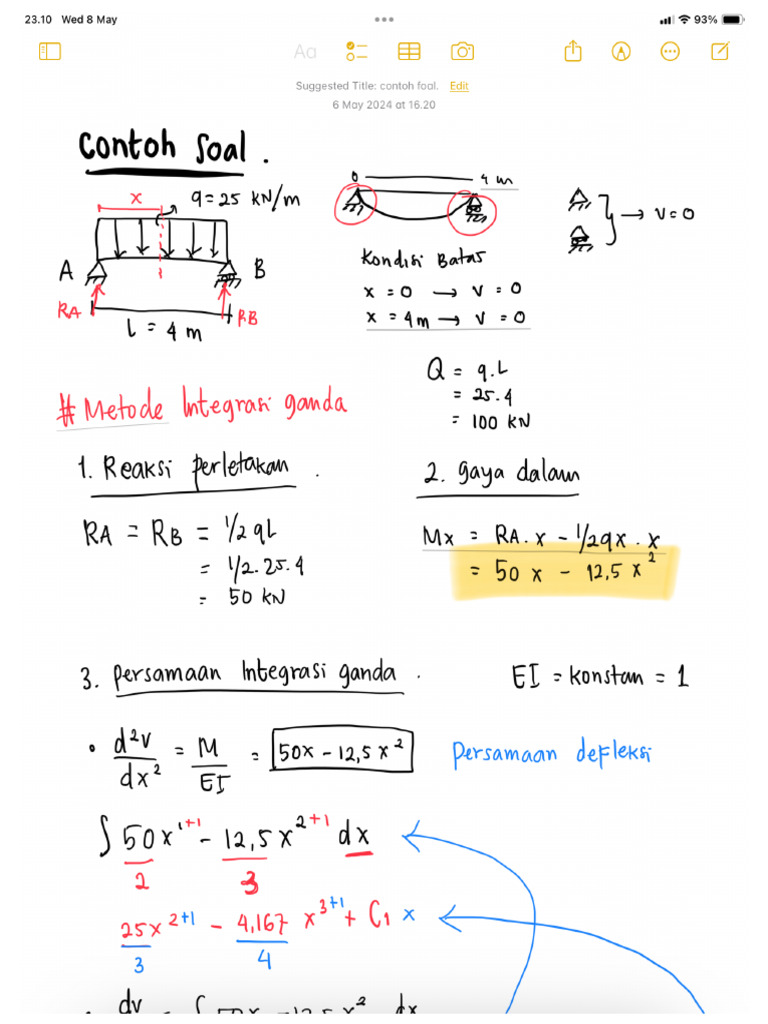 23.10 Wed 8 May
93%
Aa
Suggested Title: contoh foal. Edit
6 May 2024 at 16.20
Contoh Soal.
x
q = 25 kN/m
A
B
RA
RB
L = 4 m
0
4 m
→ v = 0
Kondisi Batas
x = 0 → v = 0
x = 4m → v = 0
Q = q.L
= 25.4
= 100 kN
# Metode Integrasi ganda
1. Reaksi perletakan.
RA = RB = 1/2 qL
= 1/2.25.4
= 50 kN
2. gaya dalam
Mx = RA.x - 1/2qx.x
= 50x - 12,5x²
3. Persamaan Integrasi ganda.
EI = konstan = 1
• d²v/dx² = M/EI = 50x - 12,5x²
Persamaan defleksi
∫ 50x¹⁺¹/2 - 12,5x²⁺¹/3 dx
25x²⁺¹/3 - 4,167/4 x³⁺¹ + C₁x